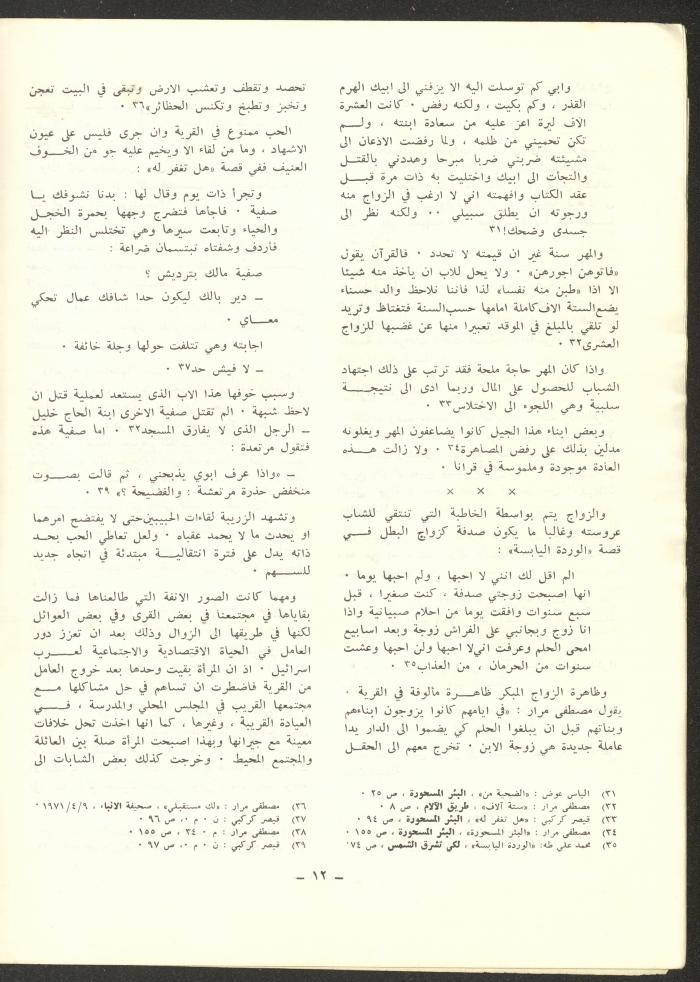 وابي كم توسلت اليه الا يزفني الى ابيك الهرم
القذر ، وكم بكيت ، ولكنه رفض . كانت العشرة
الاف ليرة اعز عليه من سعادة ابنته ، ولم
تكن تحميني من ظلمه ، ولما رفضت الاذعان الى
مشيئته ضربني ضربا مبرحا وهددني بالقتل
والتجأت الى ابيك واختليت به ذات مرة قبل
عقد الكتاب وافهمته اني لا ارغب في الزواج منه
ورجوته ان يطلق سبيلي .. ولكنه نظر الى
جسدي وضحك!٣١
والمهر سنة غير ان قيمته لا تحدد . فالقرآن يقول
«فاتوهن اجورهن» . ولا يحل للاب ان ياخذ منه شيئا
الا اذا «طبن منه نفسا» لذا فاننا نلاحظ والد حسناء
يضع الستة الاف كاملة امامها حسب السنة فتغتاظ وتريد
لو تلقي بالمبلغ في الموقد تعبيرا منها عن غضبها للزواج
العشري٣٢ .
واذا كان المهر حاجة ملحة فقد ترتب على ذلك اجتهاد
الشباب للحصول على المال وربما ادى الى نتيجة
سلبية وهي اللجوء الى الاختلاس٣٣ .
وبعض ابناء هذا الجيل كانوا يضاعفون المهر ويغلونه
مدلين بذلك على رفض المصاهرة٣٤ . ولا زالت هذه
العادة موجودة وملموسة في قرانا .
× × ×
والزواج يتم بواسطة الخاطبة التي تنتقي للشاب
عروسته وغالبا ما يكون صدفة كزواج البطل في
قصة «الوردة اليابسة» :
الم اقل لك انني لا احبها ، ولم احبها يوما .
انها اصبحت زوجتي صدفة ، كنت صغيرا ، قبل
سبع سنوات وافقت يوما من احلام صبيانية واذا
انا زوج وبجانبي على الفراش زوجة وبعد اسابيع
امحى الحلم وعرفت اني لا احبها ولن احبها وعشت
سنوات من الحرمان ، من العذاب٣٥ .
وظاهرة الزواج المبكر ظاهرة مالوفة في القرية .
يقول مصطفى مرار : «في ايامهم كانوا يزوجون ابناءهم
وبناتهم قبل ان يبلغوا الحلم كي يضموا الى الدار يدا
عاملة جديدة هي زوجة الابن . تخرج معهم الى الحقل
٣١) الياس عوض : «الضحية من» ، البئر المسحورة ، ص ٢٥ .
٣٢) مصطفى مرار : «ستة آلاف» ، طريق الآلام ، ص ٨ .
٣٣) قيصر كركبي : «هل تغفر له» ، البئر المسحورة ، ص ٩٤ .
٣٤) مصطفى مرار : «البئر المسحورة» ، البئر المسحورة ، ص ١٥٥ .
٣٥) محمد علي طه: «الوردة اليابسة» ، لكي تشرق الشمس ، ص ٧٤.
تحصد وتقطف وتعشب الارض وتبقى في البيت تعجن
وتخبز وتطبخ وتكنس الحظائر»٣٦ .
الحب ممنوع في القرية وان جرى فليس على عيون
الاشهاد ، وما من لقاء الا ويخيم عليه جو من الخوف
العنيف ففي قصة «هل تغفر له» :
وتجرأ ذات يوم وقال لها : بدنا نشوفك يا
صفية . فاجأها فتضرج وجهها بحمرة الخجل
والحياء وتابعت سيرها وهي تختلس النظر اليه
فاردف وشفتاه تبتسمان ضراعة :
صفية مالك بترديش ؟
ــ دير بالك ليكون حدا شافك عمال تحكي
معاي .
اجابته وهي تتلفت حولها وجلة خائفة .
ــ لا فيش حد٣٧ .
وسبب خوفها هذا الاب الذي يستعد لعملية قتل ان
لاحظ شبهة . الم تقتل صفية الاخرى ابنة الحاج خليل
ــ الرجل الذي لا يفارق المسجد٣٢ . اما صفية هذه
فتقول مرتعدة :
ــ «واذا عرف ابوي يذبحني ، ثم قالت بصوت
منخفض حذرة مرتعشة : والفضيحة ؟» ٣٩ .
وتشهد الزريبة لقاءات الحبيبين حتى لا يفتضح امرهما
او يحدث ما لا يحمد عقباه . ولعل تعاطي الحب بحد
ذاته يدل على فترة انتقالية مبتدئة في اتجاه جديد
للسهم .
ومهما كانت الصور الانفة التي طالعناها فما زالت
بقاياها في مجتمعنا في بعض القرى وفي بعض العوائل
لكنها في طريقها الى الزوال وذلك بعد ان تعزز دور
العامل في الحياة الاقتصادية والاجتماعية لعرب
اسرائيل . اذ ان المرأة بقيت وحدها بعد خروج العامل
من القرية فاضطرت ان تساهم في حل مشاكلها مع
مجتمعها القريب في المجلس المحلي والمدرسة ، في
العيادة القريبة ، وغيرها ، كما انها اخذت تحل خلافات
معينة مع جيرانها وبهذا اصبحت المرأة صلة بين العائلة
والمجتمع المحيط . وخرجت كذلك بعض الشابات الى
٣٦) مصطفى مرار : «لك مستقبلي» ، صحيفة الانباء ، ١٩٧١/٤/٩ .
٣٧) قيصر كركبي : ن . م .، ص ٩٦ .
٣٨) مصطفى مرار : م . ٣٤ ، ص ١٥٥ .
٣٩) قيصر كركبي : ن . م .، ص ٩٧ .
ــ ١٢ ــ